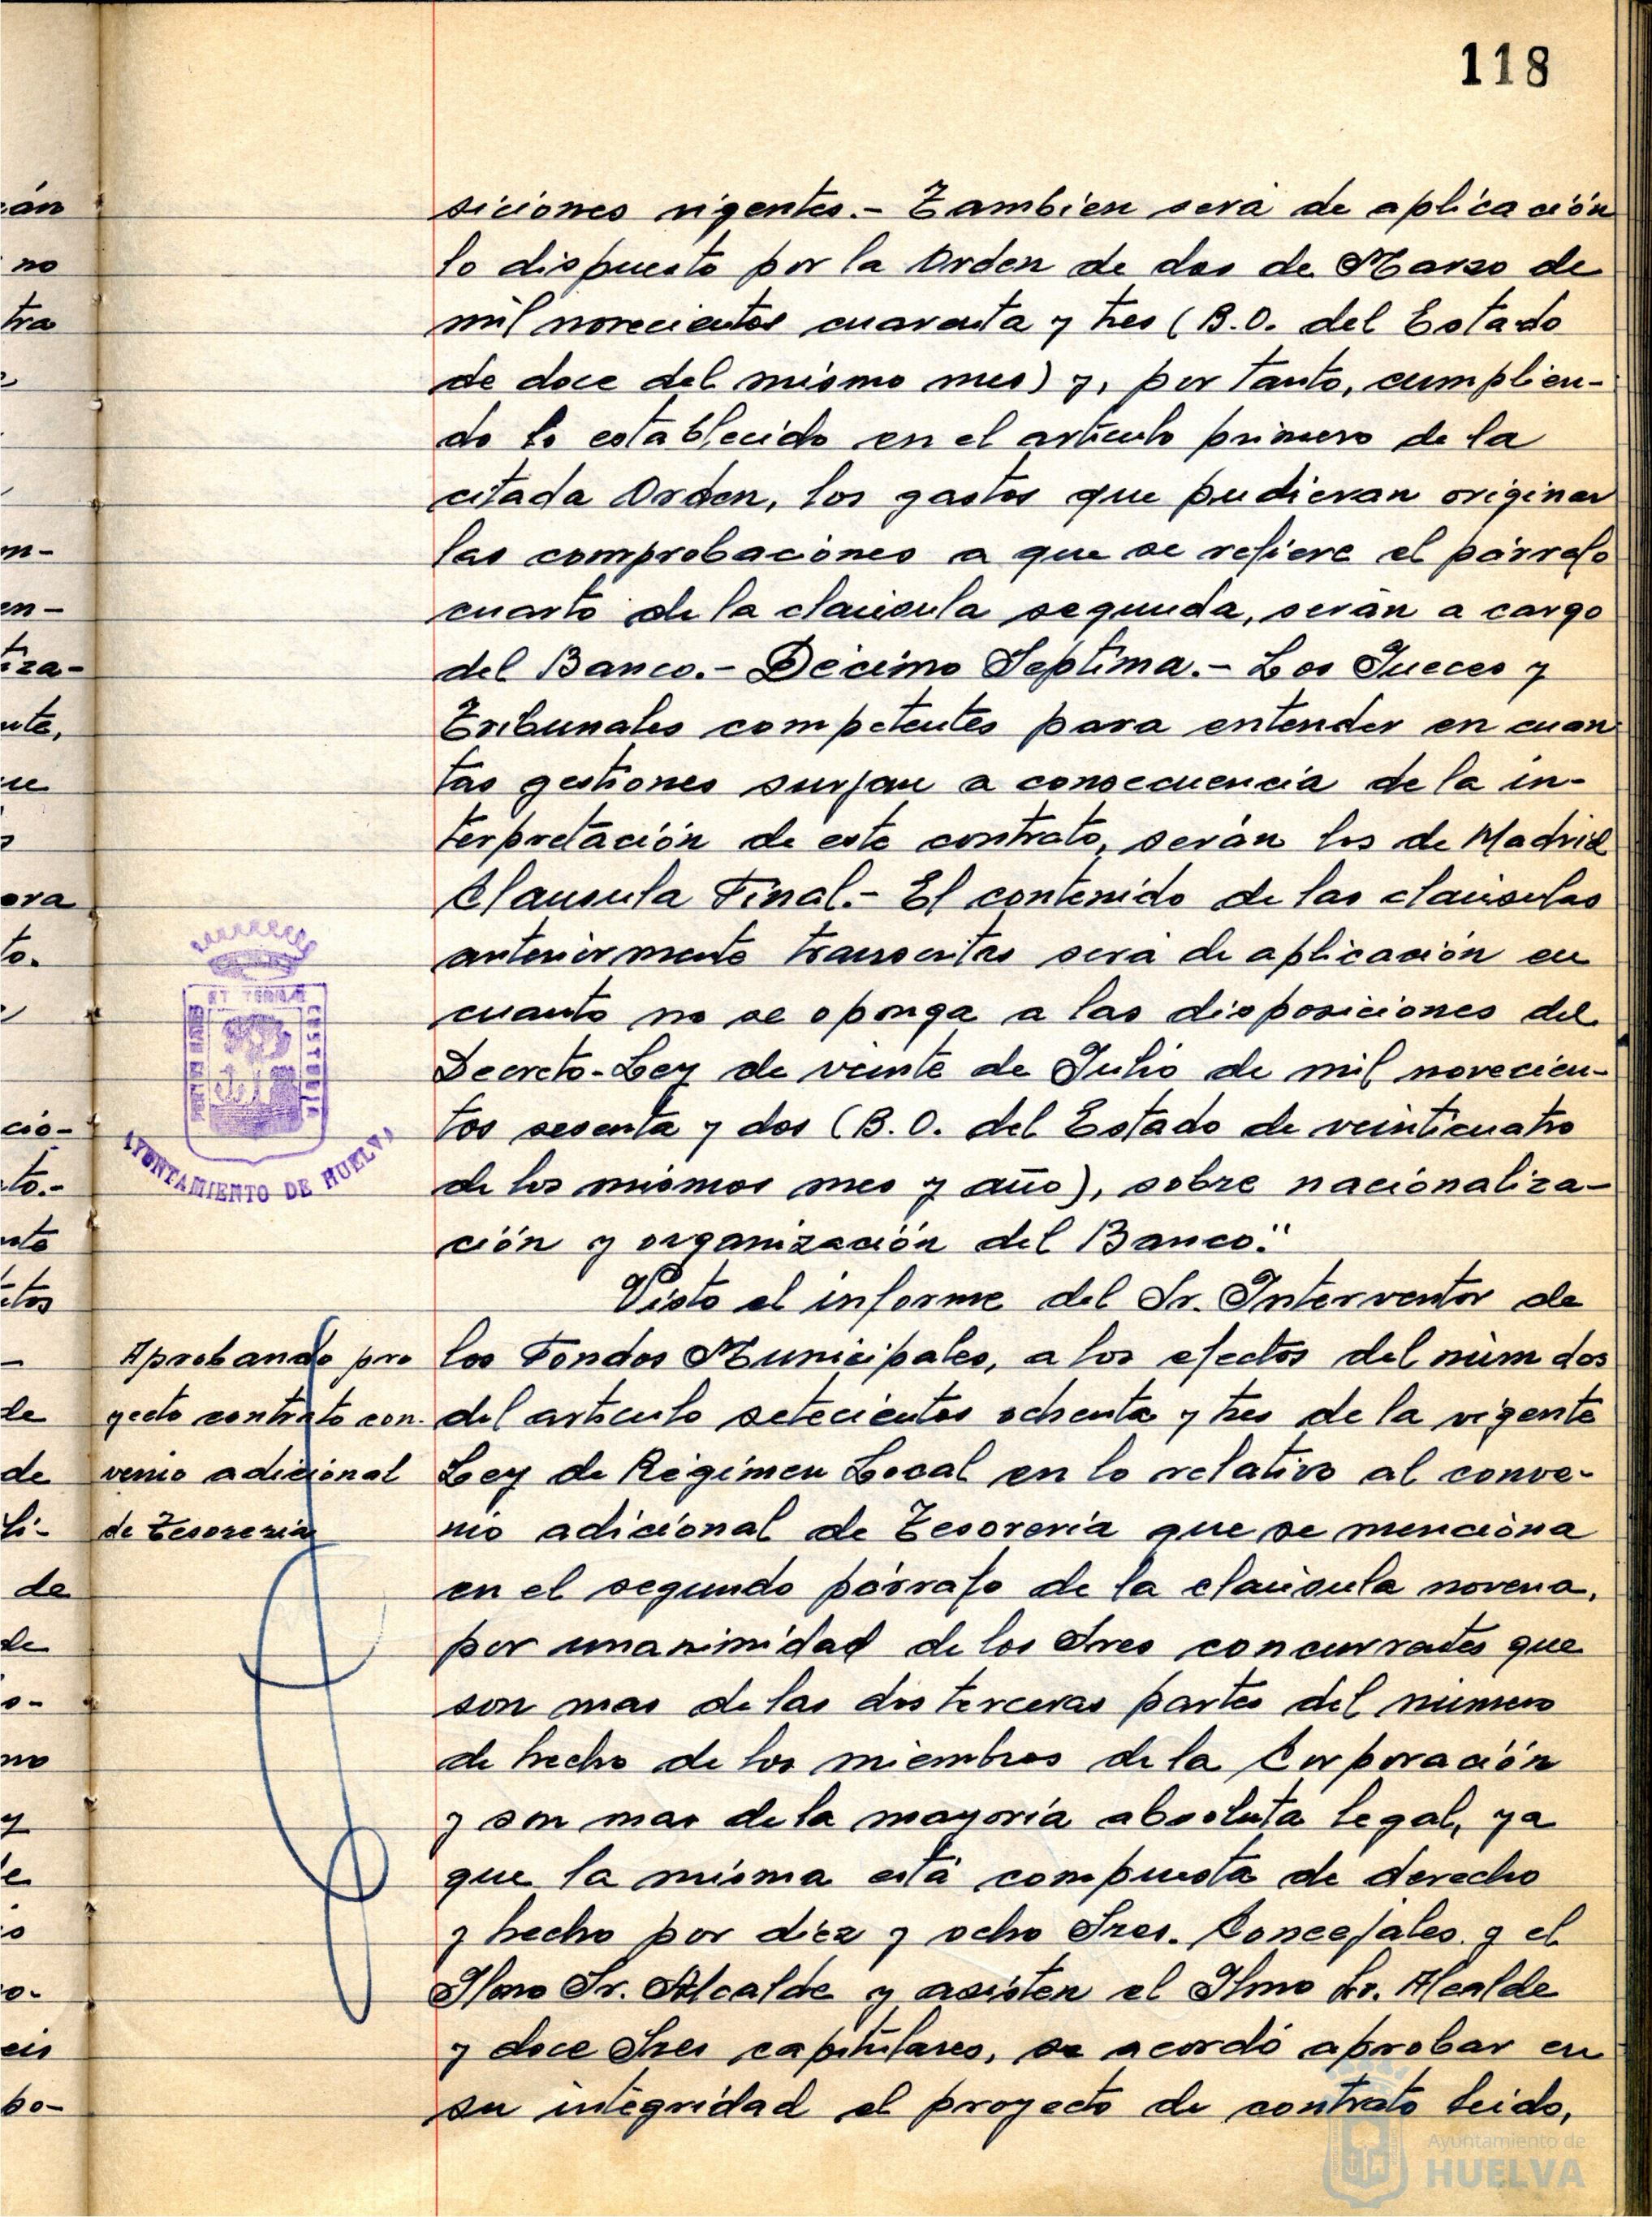 118
siciones vigentes.- Tambien será de aplicación
lo dispuesto por la Orden de dos de Marzo de
mil novecientos cuarenta y tres (B.O. del Estado
de doce del mismo mes) y, por tanto, cumplien-
do lo establecido en el artículo primero de la
citada Orden, los gastos que pudieran originar
las comprobaciones a que se refiere el párrafo
cuarto de la claúsula segunda, serán a cargo
del Banco.- Décimo Septima.- Los Jueces y
Tribunales competentes para entender en cuan
tas gestiones surjan a consecuencia de la in-
terpretación de este contrato, serán los de Madrid
Clausula Final.- El contenido de las claúsulas
anteriormente transcritas será de aplicación en
cuanto no se oponga a las disposiciones del
Decreto-Ley de veinte de Julio de mil novecien-
tos sesenta y dos (B.O. del Estado de veinticuatro
de los mismos mes y año), sobre nacionaliza-
ción y organización del Banco."
Visto el informe del Sr. Interventor de
los Fondos Municipales, a los efectos del núm dos
del artículo setecientos ochenta y tres de la vigente
Ley de Régimen Local en lo relativo al conve-
nio adicional de Tesorería que se menciona
en el segundo párrafo de la claúsula novena,
por unanimidad de los Sres concurrentes que
son mas de las dos terceras partes del número
de hecho de los miembros de la Corporación
y son mas de la mayoría absoluta legal, ya
que la misma está compuesta de derecho
y hecho por diez y ocho Sres. Concejales y el
Ilmo Sr. Alcalde y asisten el Ilmo Sr. Alcalde
y doce Sres capitulares, se acordó aprobar en
su integridad el proyecto de contrato leido,
Aprobando pro
yecto contrato con-
venio adicional
de Tesorería
AYUNTAMIENTO DE HUELVA
PORTUS MARIS
ET TERRAE
CUSTODIA
án
no
tra
m-
en-
iza-
nte,
ue
ora
to.
ció-
to.-
nto
itos
-
de
de
li-
de
de
o-
no
y
e
o-
eis
bo-
Ayuntamiento de
HUELVA